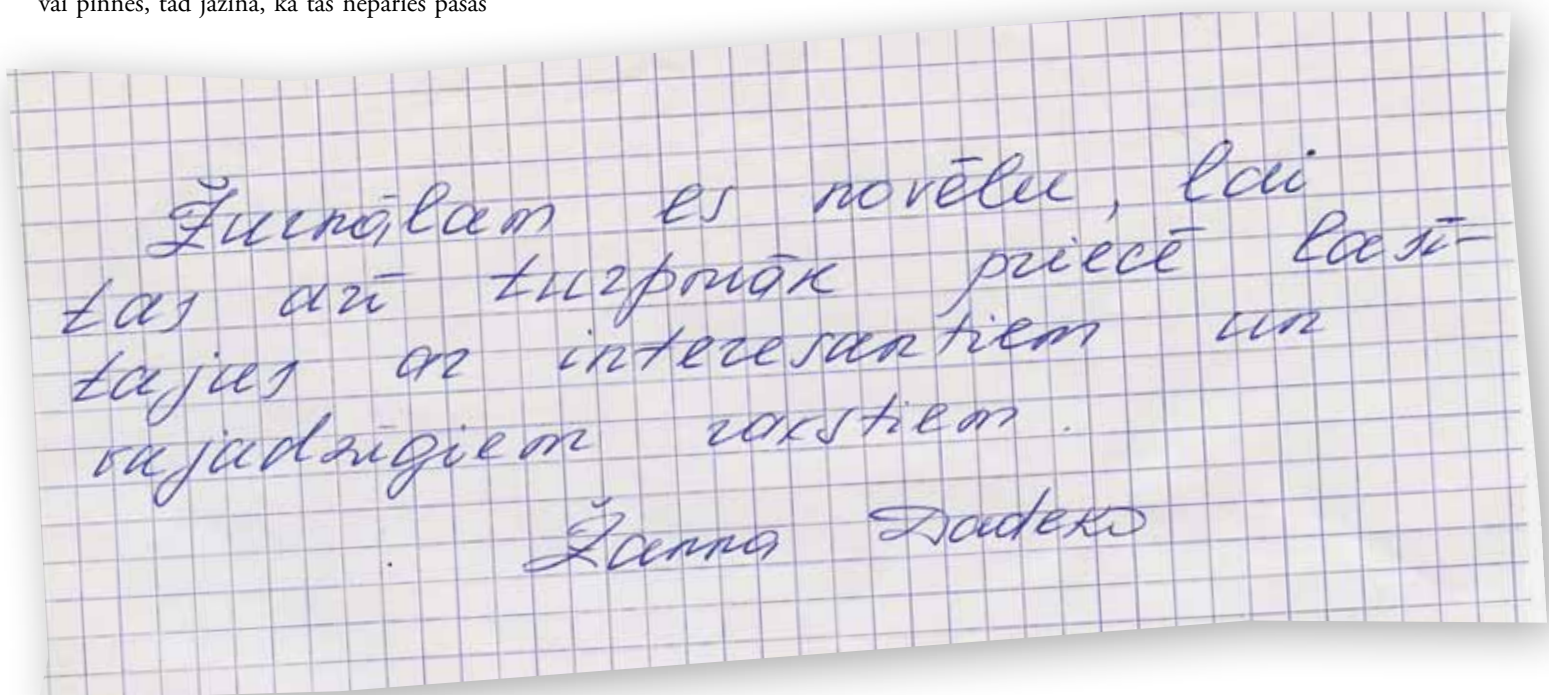 vai pinnes, tad jāzina, ka tas nepāries pašas
Žurnālam es novēlu, lai
tas arī turpmāk priecē lasī-
tajus ar interesantiem un
vajadzīgiem rakstiem.
Žanna Dadeko